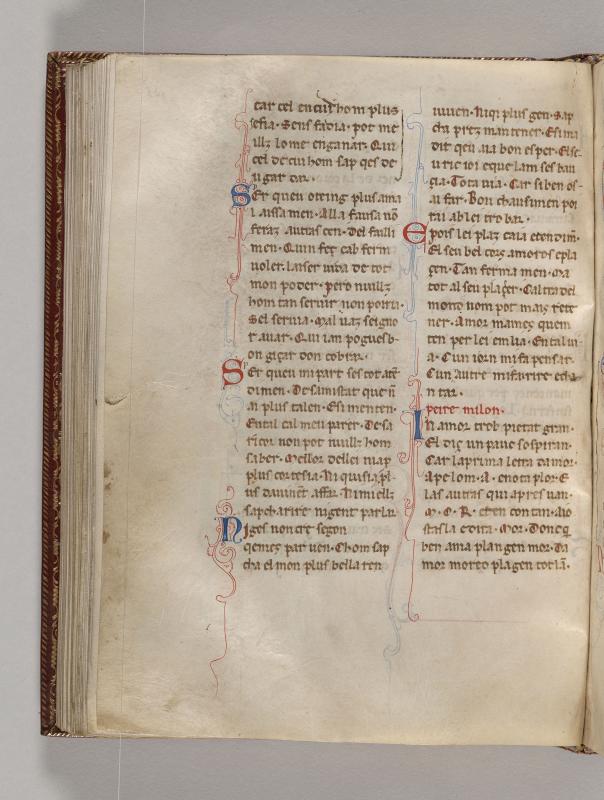 car cel en cui hom plus
se fia. Seus fadia. pot me
illz lome enganar. Qui
cel de cui hom sap qes de
ugar dar.
Er queu oteing plus ama
laissa men. Alla faussa nō
feraz autras cen. del failli
men. Quin fez cab ferm
uoler. Laiser uida de tot
mon poder. pero nuillz
hom tan seruir non poiria.
Sel seruia. Mal uaz seigno
r auar. Qui ian pogues b
on gizar don cobrar.
Er queu mi part ses tot atē
dimen. De samistat que ñ
ai plus talen. Esi menten.
Ental cal meu parer. De sa
ricor non pot nuillz hom
saber. Meillor dellei ni ap
plus cortesia. Ni qui sia pl
us dauinēt affar. Ni mieillz
sapcha rire ni gent parlar
Niges non cre segon
qemes par uen. Chom sap
cha el mon plus bella ren
iuuen. Ni qi plus gen. Sap
cha prez mantener. Esi ma
dit qeu aia bon esper. Else
uric ioi eque lam ses bau
çia. Tota uia. Car si ben os
a far. Bon chausimen poi
rai ab lei trobar.
E pois lei plaz caia etendim̄.
El seu bel cors amoros epla
çen. Tan ferma men. Ma
tot al seu plaçer. Cal tra del
mond nom pot mais rete
ner. Amor mames quem
ten per lei em lia. En tal ui
a. Cun iorn mi fa pensar.
Cun autre mi fa rire echa
n tar.
peire milon.
In amor trob pietat gran.
El diç un pauc sospiran.
Car la prima letra damor.
Apelom. A. enota plor. E
las autras qui apres uan.
M. O. R. et en contan. Aio
stas la e dira. Mor. Doncq̄
ben ama plangen mor. Da
mor moreo plagen tot lā.